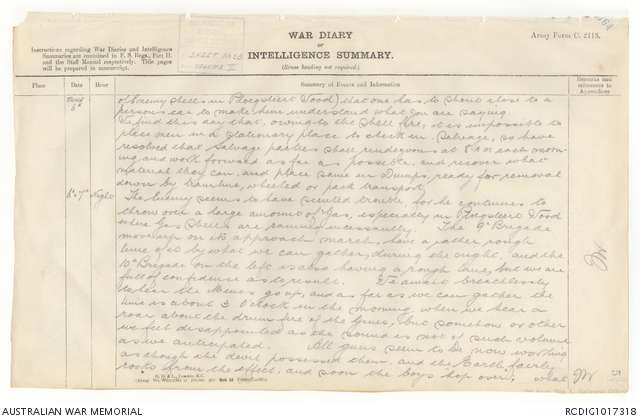 WAR DIARY
or
INTELLIGENCE SUMMARY.
(Erase heading not required.)
Army Form C. 2118.
Instructions regarding War Diaries and Intelligence
Summaries are contained in F. S. Regs., Part II.
and the Staff Manual respectively. Title pages
will be prepared in manuscript.
Place
Date
Hour
Summary of Events and Information
Remarks and
references to
Appendices
of Enemy Shells in Ploegsteert Wood, that one has to shout close to a
persons ear to make him understand what you are saying.
We find this day that, owing to the Shell fire, it is impossible to
place men in a stationary place to check in Salvage, so have
resolved that Salvage parties shall rendezvous at each morn-
ing, and work forward as far as possible, and recover what
material they can, and place same in Dumps, ready for removal
down by tramline, wheeled or pack transport.
Night The Enemy seems to have scented trouble, for he continues to
throw over a large amount of Gas, especially in Ploegsteert Wood
where Gas Shells are raining incessantly. The 9th Brigade
moving up on its approach march, have a rather rough
time of it by what we can gather, during the night, and the
10th Brigade on the left is also having a rough time, but we are
full of confidence as to result. We await breathlessly
to hear the Mines go up, and as far as we can gather the
time is about 3 O'clock in the morning when we hear a
roar about the drum fire of the Guns, but somehow or other
we feel disappointed as the sound is not of such volume
as we anticipated. All guns seem to be now working
as though the devil possessed them, and the Earth fairly
roots from the effect, and soon the boys hop over, what
JW
JW
AUSTRALIAN WAR MEMORIAL
RCDIG1017318